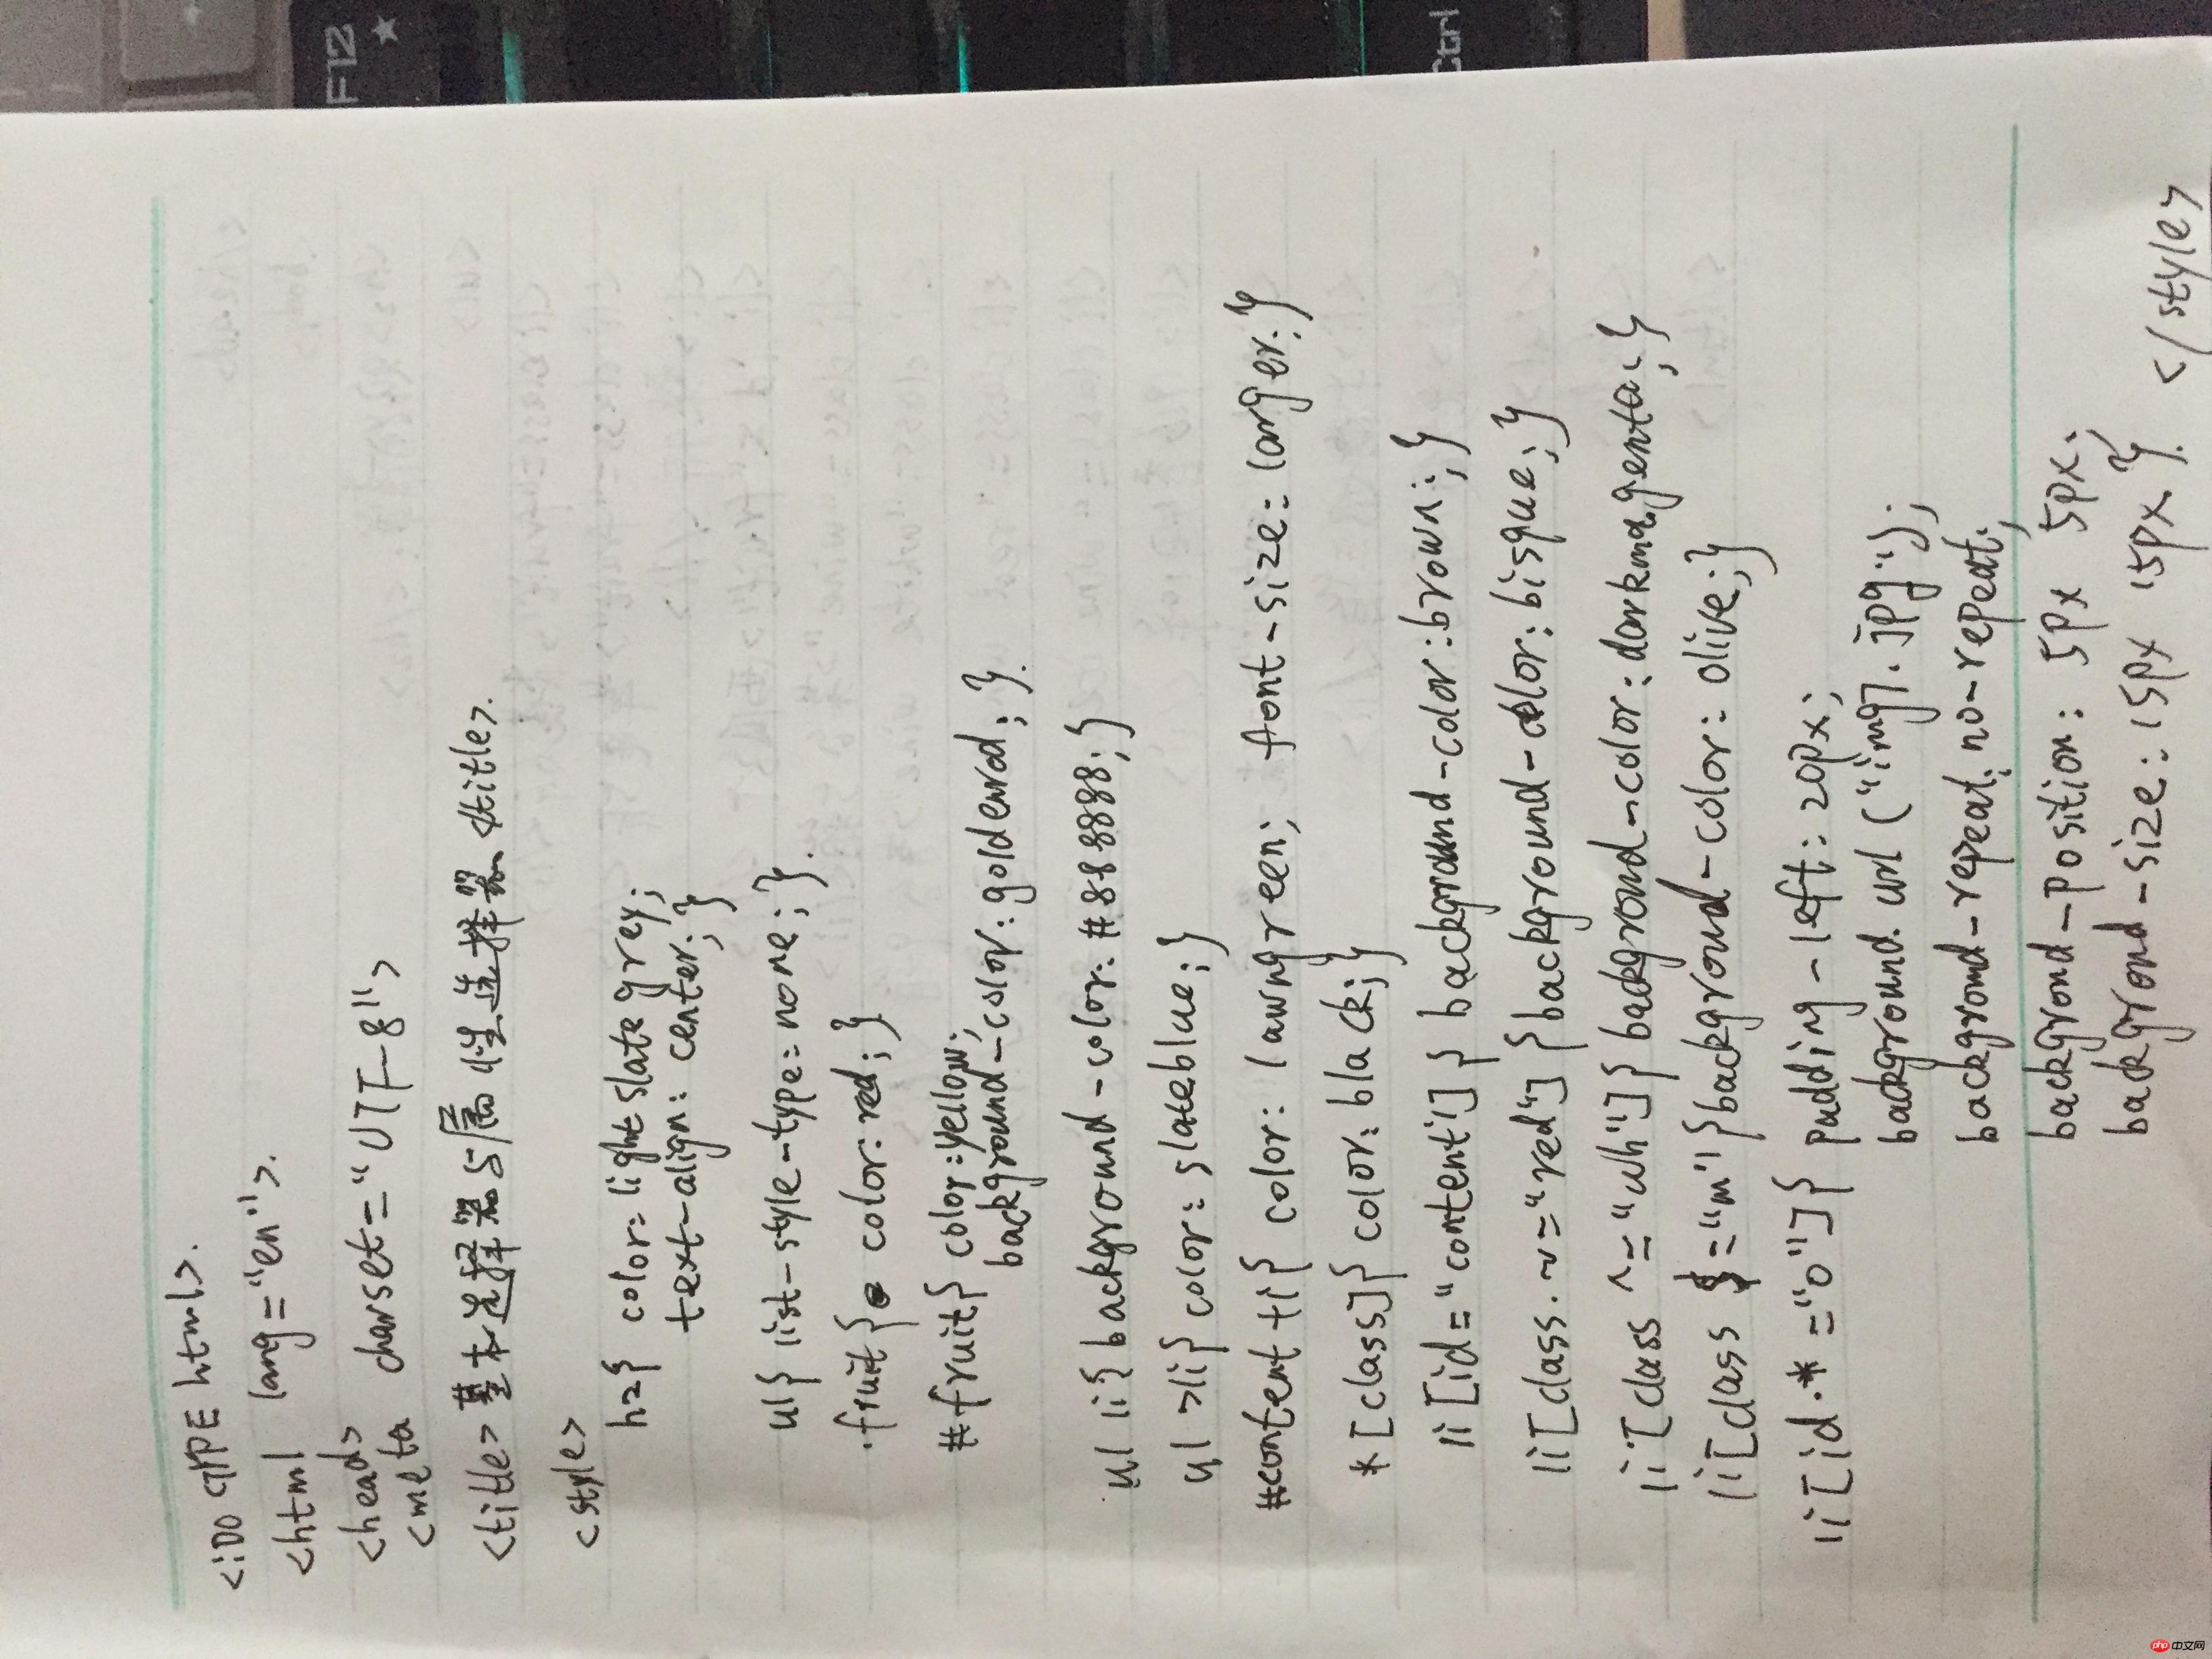 <!DO CTYPE html>.
<html lang="en">.
<head>
<meta charset="UTF-8">
<title>基本选择器与属性选择器</title>.
<style>
h2{ color:lightslategrey;
text-align:center;}
ul{list-style-type:none;}.
.fruit{ color:red;}
#fruit{color:yellow;
background-color:goldenrod;}.
ul li{background-color:#888888;}
ul >li{color:slateblue;}
#content+li{color:lawngreen; font-size:larger;}
*[class]{color:black;}
li[id="content"]{background-color:brown;}
li[class.~="red"]{background-color:bisque;}
li[class ^="wh"]{background-color:darkmagenta;}
li[class $="m"]{background-color:olive;}
li[id.*="o"]{ padding-left:20px;
background.url("img7.jpg");
backgrond-repeat:no-repeat;
backgrond-position:5px 5px;
backgrond-size:15px 15px}. </style>
F12
Ctrl
php 中文网